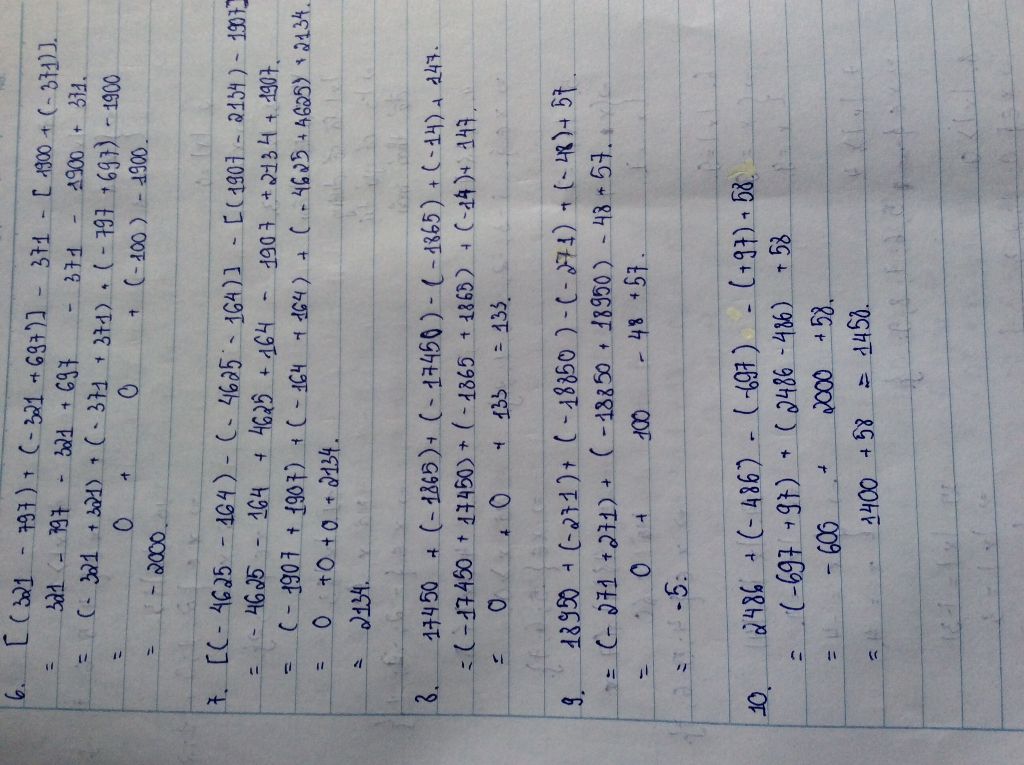 6. [(321 - 797) + (-321 + 697)] - 371 - [1900 + (-371)].
= 321 - 797 - 321 + 697 - 371 - 1900 + 371.
= (-321 + 321) + (-371 + 371) + (-797 + 697) - 1900
= 0 + 0 + (-100) - 1900.
= -2000.
7. [(-4625 - 164) - (-4625 - 164)] - [(1907 - 2134) - 1907]
= -4625 - 164 + 4625 + 164 - 1907 + 2134 + 1907.
= (-1907 + 1907) + (-164 + 164) + (-4625 + 4625) + 2134.
= 0 + 0 + 0 + 2134.
= 2134.
8. 17450 + (-1865) + (-17450) - (-1865) + (-14) + 147.
= (-17450 + 17450) + (-1865 + 1865) + (-14) + 147.
= 0 + 0 + 133 = 133.
9. 18950 + (-271) + (-18850) - (-271) + (-48) + 57.
= (-271 + 271) + (-18850 + 18950) - 48 + 57.
= 0 + 100 - 48 + 57.
= -5.
10. 2486 + (-486) - (-697) - (+97) + 58.
= (-697 + 97) + (2486 - 486) + 58
= -600 + 2000 + 58.
= 1400 + 58 = 1458.